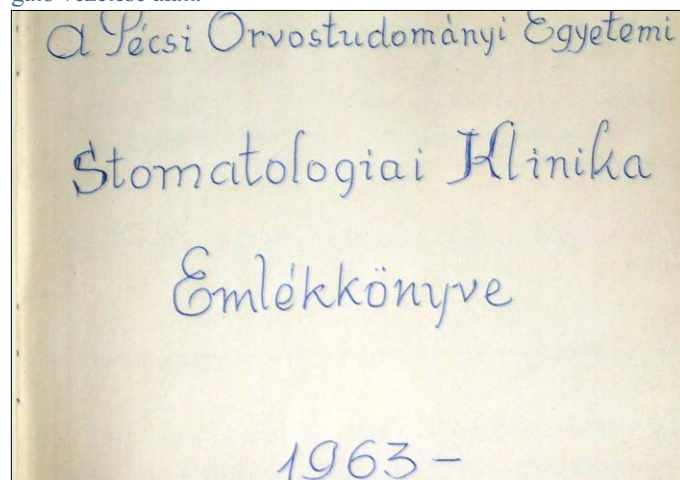 A Pécsi Orvostudományi Egyetemi
Stomatologiai Klinika
Emlékkönyve
1963-